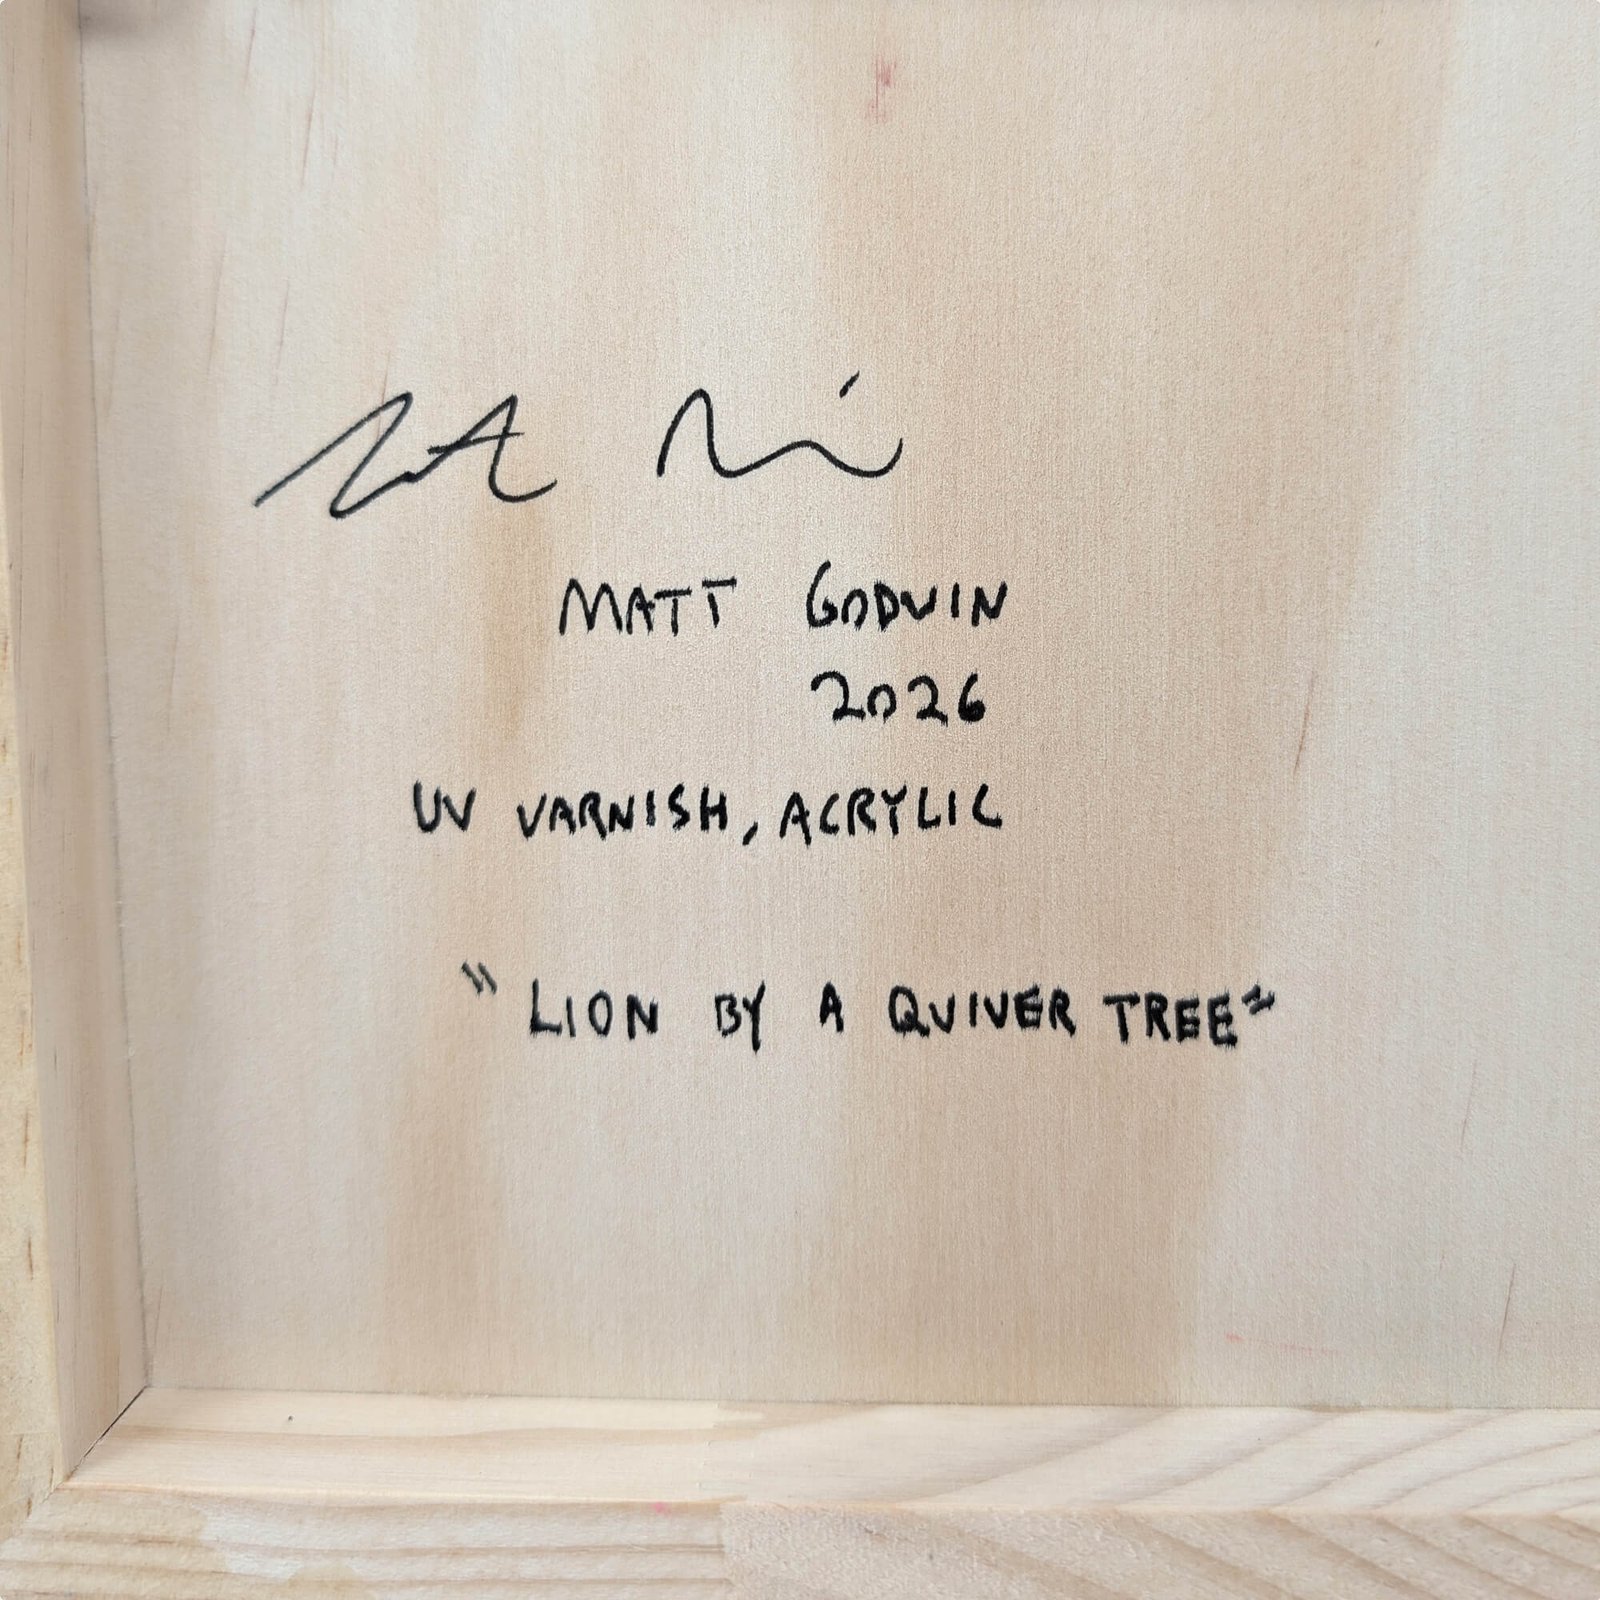 MATT GODWIN
2026
UV VARNISH, ACRYLIC
"LION BY A QUIVER TREE"